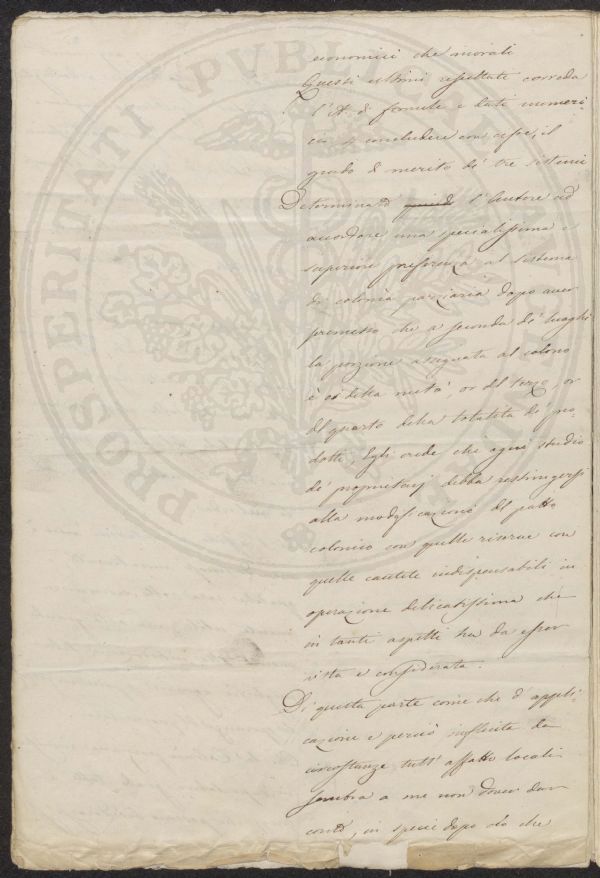 economici che morali
Questi ultimi resultati correda
l'A. di formule e dati numeri
ci p concludere con esse, il
grado di merito de' tre sistemi
Determinato quindi l'Autore ad
accordare una specialissima e
superiore preferenza al sistema
di colonia parziaria dopo aver
premesso che a seconda de' luoghi
la porzione assegnata al colono
è or della metà, or del terzo, or
del quarto della totalità de' pro
dotti, Egli crede che ogni studio
de' proprietarj debba restringersi
alla modificazione del patto
colonico con quelle riserve con
quelle cautele indispensabili in
operazione delicatissima che
in tanti aspetti ha da esser
vista e considerata.
Di questa parte come che d'appli-
cazione e perciò influita da
circostanze tutt'affatto locali
sembra a me non dover dar
conto, in specie dopo ciò che
PROSPERITATI PVBLI